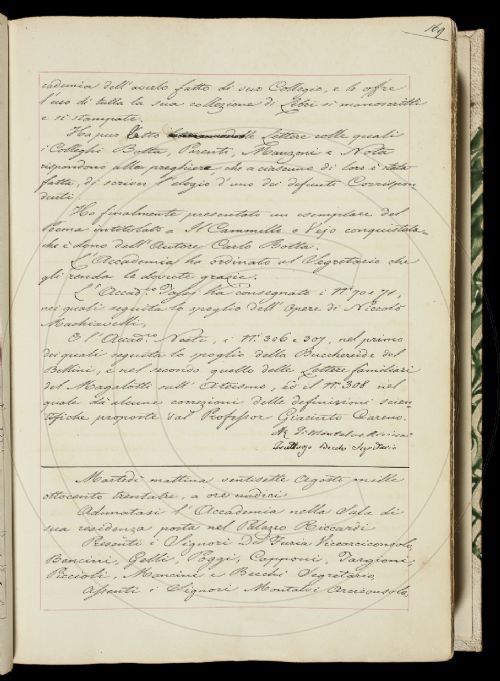 169
cademia dell'averlo fatto di suo Collegio, e le offre
l'uso di tutta la sua collezione di Libri sì manoscritti
e sì stampati.
Ha pur letto lettere colle quali
i Colleghi Botta, Parenti, Manzoni e
rispondono alla preghiera che a ciascuno di loro è stata
fatta, di scriver l'elogio d'uno dei defunti Corrispon
denti.
Ha finalmente presentato un esemplare del
Poema intitolato Il Cammillo o Vejo conquistata
che è dono dell'Autore Carlo Botta.
L'Accademia ha ordinato al Segretario che
gli renda le dovute grazie.
L'Accad.co ha consegnato i N.i 70 e 71,
nei quali seguita lo spoglio dell'Opere di Niccolò
Machiavelli,
E l'Accad.co Nesti, i N.i 306 e 307, nel primo
dei quali seguita lo spoglio della Bucchereide del
Bellini, e nel secondo quello delle Lettere familiari
del Magalotti sull'Ateismo, ed il N.o 308 nel
quale dà alcune correzioni delle definizioni scien-
tifiche proposte dal Professor Giacinto
Segretario
Martedì mattina ventisette Agosto mille
ottocento trentatre, a ore undici
Adunatasi l'Accademia nella Sala di
sua residenza posta nel Palazzo Riccardi
Presenti i Signori Del Furia Vicearciconsolo,
Bencini, Gelli, Poggi, Capponi, Targioni,
Piccioli, Mancini e Becchi Segretario,
Assenti i Signori Montalvi Arciconsolo,